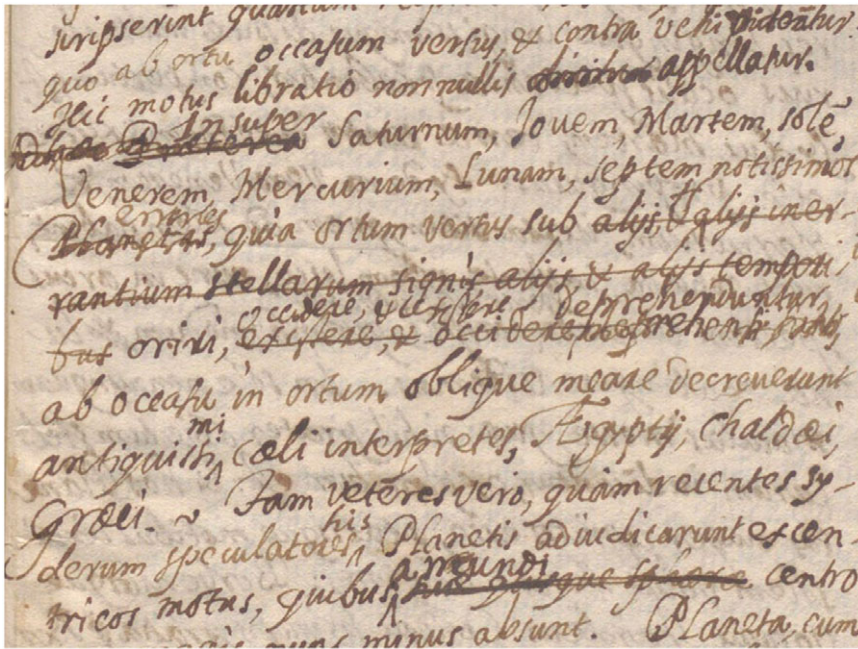 scripserint quantum
quo ab ortu occasum versus, & contra vehi videntur.
Hic motus libratio nonnullis appellatur.
Insuper
Præterea Saturnum, Jovem, Martem, solē,
Venerem, Mercurium, Lunam, septem notissimos
errones
Planetas, quia ortum versus sub alijs, & alijs iner-
rantium stellarum signis alijs, & alijs tempori
occidere, & existere deprehenduntur,
bus oriri, existere, & occidere deprehensi sunt,
ab occasu in ortum oblique meare decreverunt
mi
antiquissi, cæli interpretes, Ægyptij, Chaldæi,
Græci. Tam veteres vero, quàm recentes sy-
his
derum speculatores, Planetis adiudicarunt excen-
a mundi
tricos motus, quibus, sua quisque sphæra centro
minus absunt. Planeta, cum